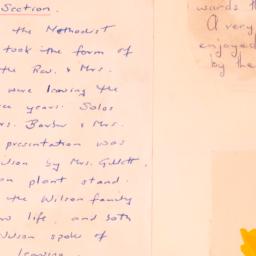 Section.
the Methodist
took the form of
the Rev. & Mrs.
were leaving the
years. Solos
Mrs. Barber & Mrs.
presentation was
by Mrs. Gillett.
plant stand.
the Wilson family
life, and both
Wilson spoke of
leaving
wards th
A very
enjoyed
by the